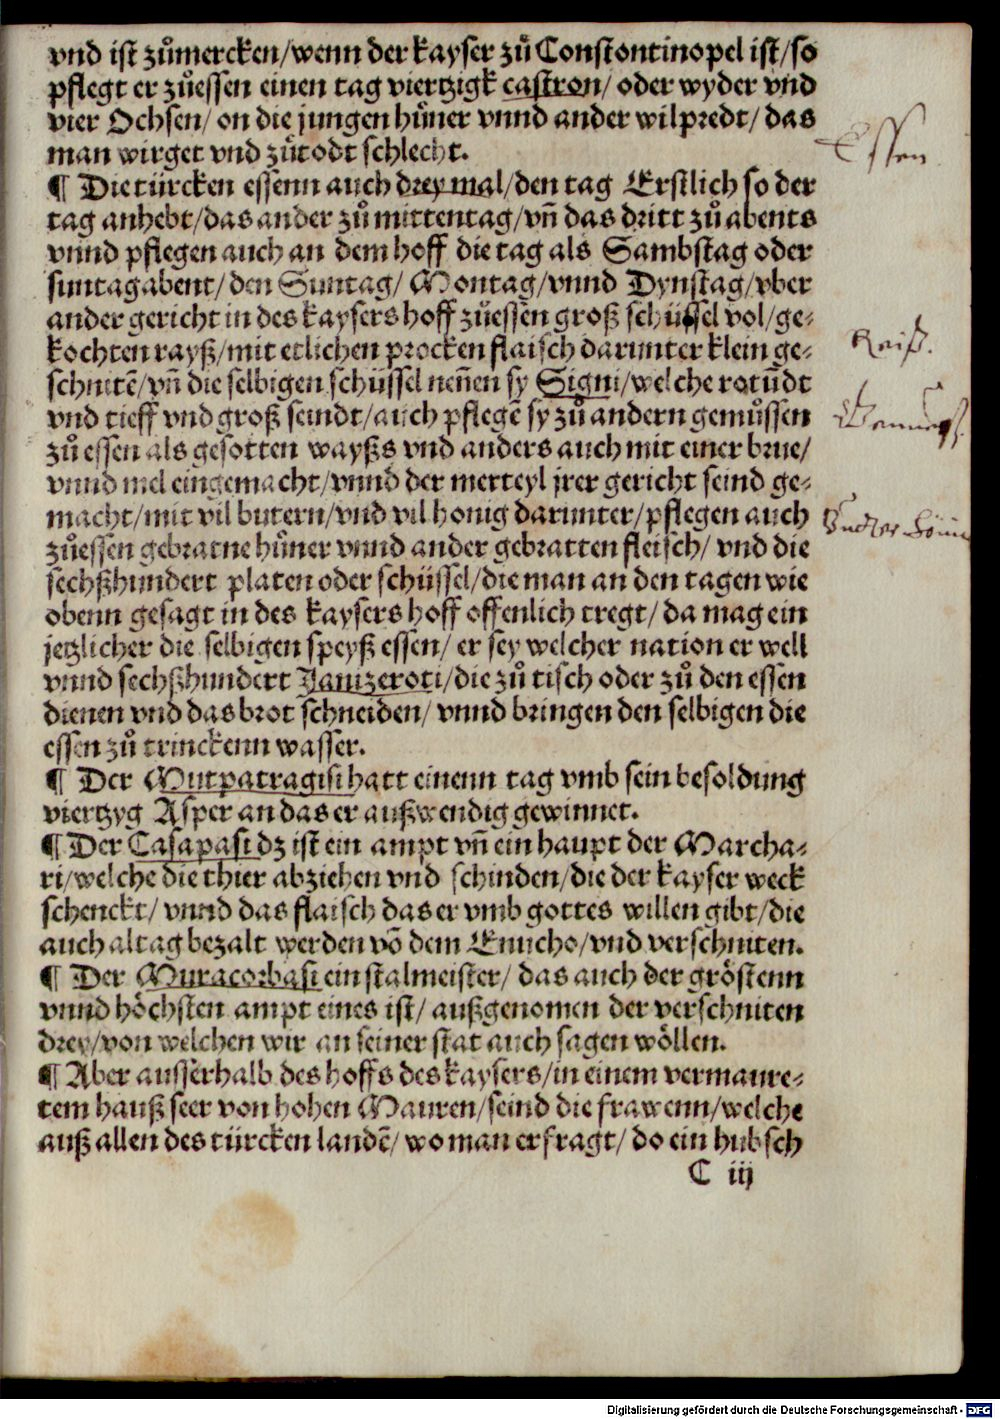 vnd ist zůmercken/wenn der kayser zů Constontinopel ist/so
pflegt er zůessen einen tag viertzigk castron/ oder wyder vnd
vier Ochsen/ on die jungen hůner vnnd ander wilpredt/ das
man wirget vnd zůtodt schlecht.
Essen
¶ Die türcken essenn auch drey mal/den tag Erstlich so der
tag anhebt/das ander zů mittentag/vñ das dritt zů abents
vnnd pflegen auch an dem hoff die tag als Sambstag oder
suntagabent/den Suntag/ Montag/vnnd Dynstag/vber
ander gericht in des kaysers hoff zůessen groß schüssel vol/ge⸗
kochten rayß/mit etlichen procken flaisch darunter klein ge⸗
Reiß.
schnitē/vñ die selbigen schüssel neñen sy Signi/welche rotũdt
vnd tieff vnd groß seindt/auch pflegē sy zů andern gemůssen
zů essen als gesotten wayßs vnd anders auch mit einer brue/
vnnd mel eingemacht/vnnd der merteyl jrer gericht seind ge⸗
macht/mit vil butern/vnd vil honig darunter/pflegen auch
zůessen gebratne hůner vnnd ander gebratten fleisch/ vnd die
sechßhundert platen oder schüssel/die man an den tagen wie
obenn gesagt in des kaysers hoff offenlich tregt/ da mag ein
jetzlicher die selbigen speyß essen/ er sey welcher nation er well
vnnd sechßhundert Janizeroti/die zů tisch oder zů den essen
dienen vnd das brot schneiden/ vnnd bringen den selbigen die
essen zů trinckenn wasser.
¶ Der Mutpatragisi hatt einenn tag vmb sein besoldung
viertzyg Asper an das er außwendig gewinnet.
¶ Der Casapasi dz ist ein ampt vñ ein haupt der Marcha⸗
ri/welche die thier abziehen vnd schinden/die der kayser weck
schenckt/ vnnd das flaisch das er vmb gottes willen gibt/die
auch altag bezalt werden võ dem Enucho/vnd verschniten.
¶ Der Muracorbasi ein stalmeister/ das auch der gröstenn
vnnd höchsten ampt eines ist/ außgenomen der verschniten
drey/von welchen wir an seiner stat auch sagen wöllen.
¶ Aber ausserhalb des hoffs des kaysers/in einem vermaure⸗
tem hauß seer von hohen Mauren/seind die frawenn/welche
auß allen des türcken landē/ wo man erfragt/ do ein hubsch
C iij
Digitalisierung gefördert durch die Deutsche Forschungsgemeinschaft - DFG